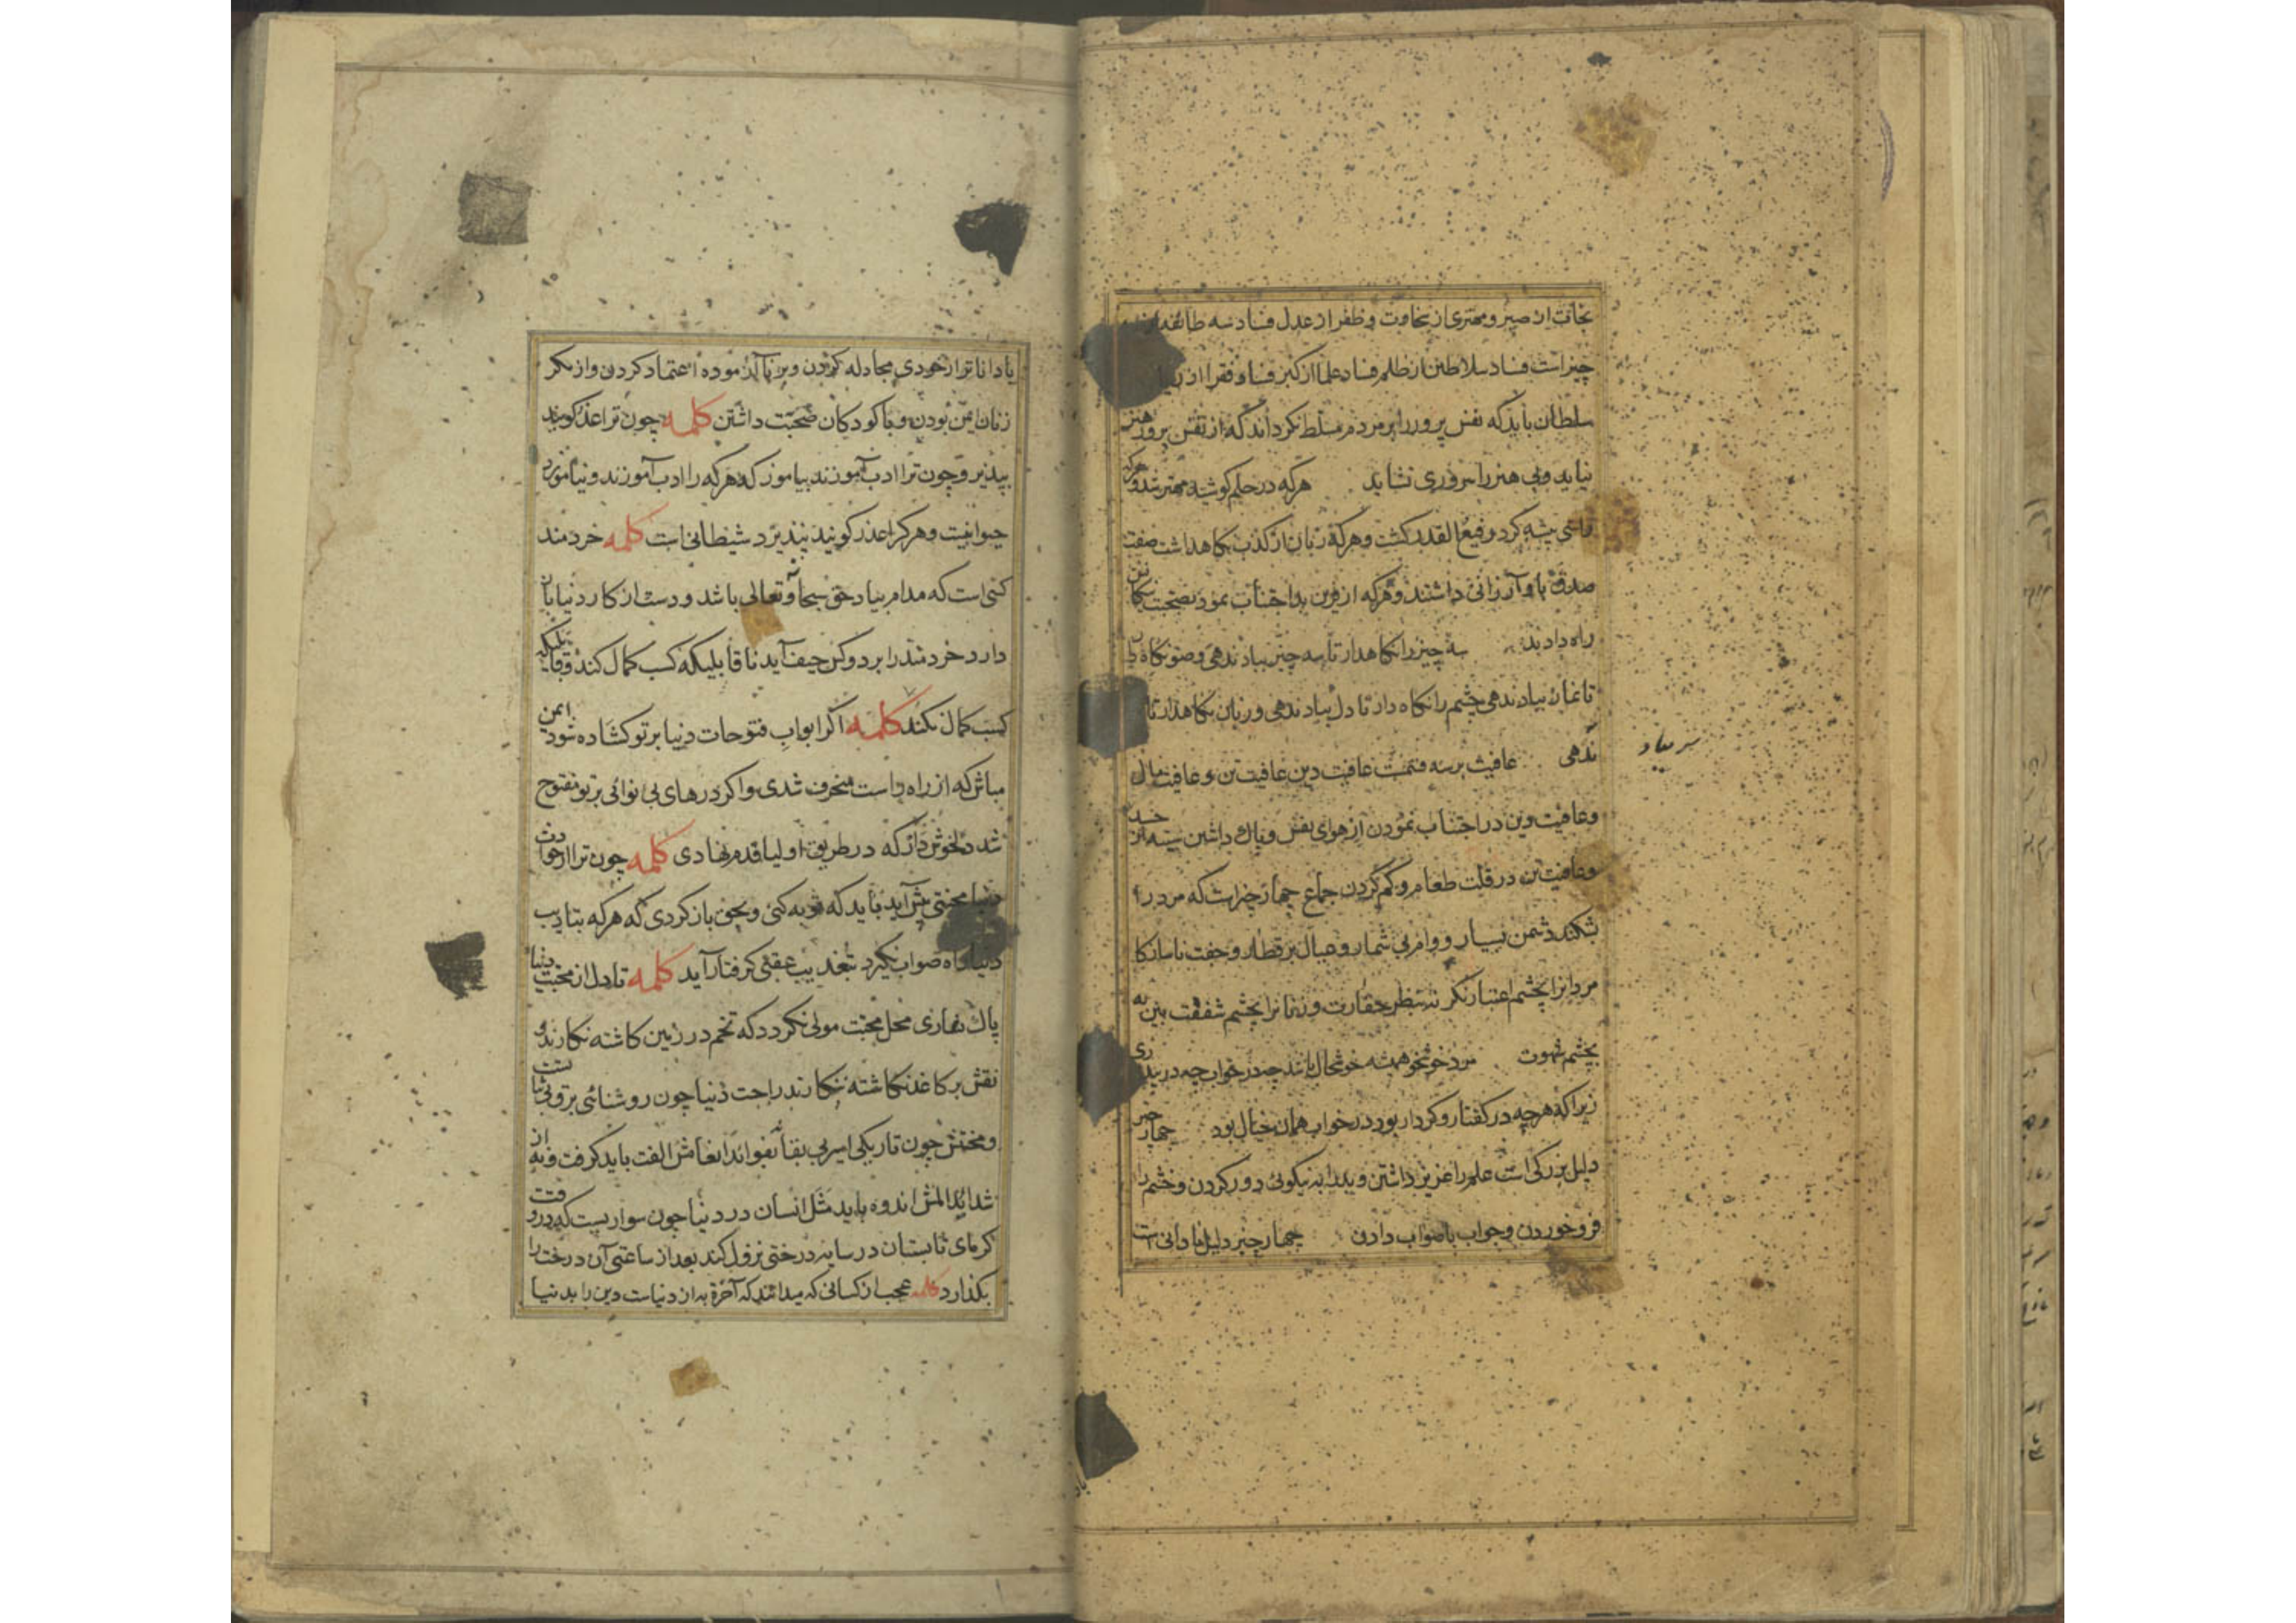 نجات از صبر و مهتری از سخاوت و ظفر از عدل فساد سه طائفه از سه
چیز است فساد سلاطین از ظلم فساد علما از کبر فساد فقرا از ریا
سلطان باید که نفس پرور را بر مردم مسلط نکرداند که از نفس پرور هنر
نیاید و بی هنر را سروری نشاید هر که در حلم کوشید مهتر شد و هر که
راستی پیشه کرد رفیع القدر کشت و هر که زبان از کذب نکاهداشت صفت
صدق باو ارزانی داشتند و هر که از قرین بد اجتناب نمود بصحبت نیکان
راه دادند سه چیز را نکاهدار تا سه چیز بباد ندهی وضو نکاه دار
تا نماز بباد ندهی چشم را نکاه دار تا دل بباد ندهی و زبان نکاهدار تا
ندهی عافیت بر سه قسمت عافیت دین عافیت تن و عافیت مال
سر بباد
و عافیت دین در اجتناب نمودن از هوای نفس و پاک داشتن سینه از حسد
و عافیت تن در قلت طعام و کم کردن جماع چهار چیز است که مرد را
بشکند دشمن بسیار و وام بی شمار و عیال بر قطار و جفت ناسازکار
مردانرا بچشم اعتبار نکر نه بنظر حقارت و زنانرا بچشم شفقت بین نه
بچشم شهوت مرد خوشخو همیشه خوشحال باشد چه در خواب چه در بیداری
زیرا که هر چه در کفتار و کردار بود در خواب همان خیال بود چهار چیز
دلیل بزرکی است علم را عزیز داشتن و بد را به نیکوئی دور کردن و خشم را
فرو خوردن و جواب با صواب دادن چهار چیز دلیل نادانی است
با داناتر از خودی مجادله کردن و بر ناآزموده اعتماد کردن و از مکر
زنان ایمن بودن و با کودکان صحبت داشتن کلمه چون ترا عذر کویند
بپذیر و چون ترا ادب آموزند بیاموز که هر که را ادب آموزند و نیاموزد
حیوانیت و هر کرا عذر کویند نپذیرد شیطانی است کلمه خردمند
کسی است که مدام بیاد حق سبحانه و تعالی باشد و دست از کار دنیا باز
دارد خردمند را بر دو کس حیف آید ناقابلیکه کسب کمال کند و قابلیکه
کسب کمال نکند کلمه اکر ابواب فتوحات دنیا بر تو کشاده شود ایمن
مباش که از راه راست منحرف شدی و اکر درهای بی نوائی بر تو مفتوح
شد دلخوش دار که در طریق اولیا قدم نهادی کلمه چون ترا از حوادث
دنیا محنتی پیش آید باید که توبه کنی و بحق باز کردی که هر که بتادیب
دنیا راه صواب نکیرد بتعذیب عقبی کرفتار آید کلمه تا دل از محبت دنیا
پاک نداری محل محبت مولی نکردد که تخم در زمین کاشته نکارند و
نقش بر کاغذ نکاشته ننکارند راحت دنیا چون روشنائی برق بی ثباتست
و محنتش چون تاریکی ابر بی بقا نه بفوائد انعامش الفت باید کرفت و نه از
شداید المش اندوه باید مثل انسان در دنیا چون سواریست که در وقت
کرمای تابستان در سایه درختی نزول کند بعد از ساعتی آن درخت را
بکذارد کلمه عجب از کسانی که میدانند که آخرة به از دنیاست دین را بدنیا